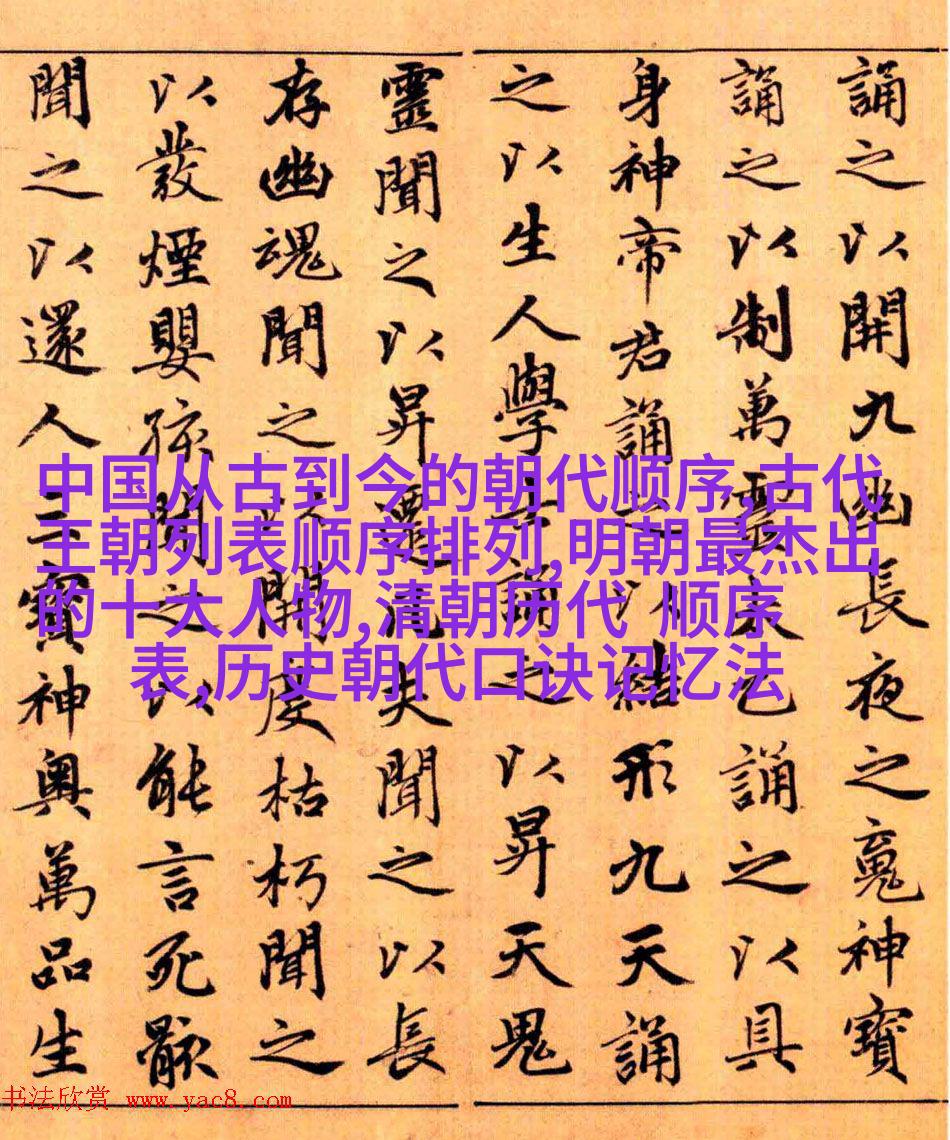 誦之以開九幽長夜之䰟神寶
誦之以制萬靈太乙誦之以具
身神帝君誦之以結形九天誦
之以生人學士誦之以昇天鬼
靈聞之以昇遷凡夫聞之以長
存幽魂聞之以開度枯朽聞之
以發煙嬰孩聞之以能言死骸
聞之以還人三寶神奧萬品生
中国从古到今的朝代顺序,古代
王朝列表顺序排列,明朝最杰出
的十大人物,清朝历代 顺序
表,历史朝代口诀记忆法
书法欣赏 www.yac8.com